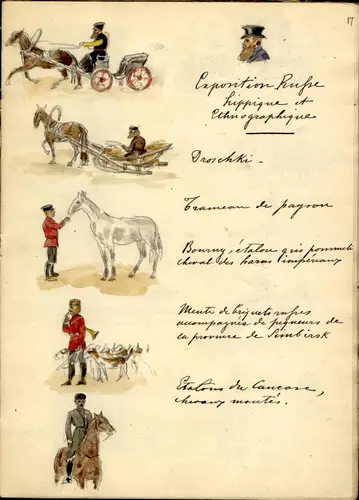 17
Exposition Russe
hippique et
Ethnographique
Droschki -
Traineau de paysan
Bourny, étalon gris pommelé
cheval des haras impériaux
Meute de briquets russes
accompagnés de piqueurs de
la province de Simbirsk
Etalons du Caucase,
chevaux montés.